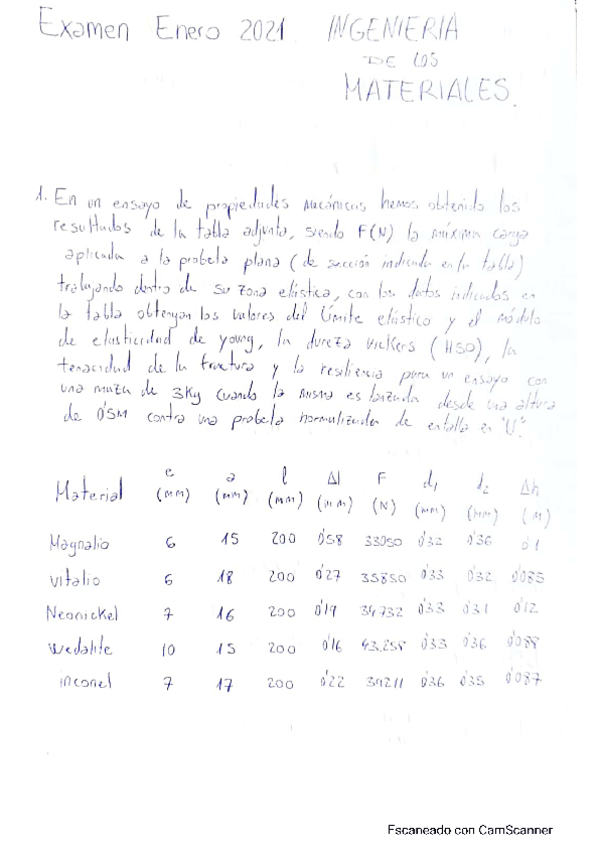 Examen Enero 2021. INGENIERIA
DE LOS
MATERIALES.
1. En un ensayo de propiedades mecánicas hemos obtenido los
resultados de la tabla adjunta, siendo F(N) la máxima carga
aplicada a la probeta plana (de sección indicada en la tabla)
trabajando dentro de su zona elástica, con los datos indicados en
la tabla obtengan los valores del límite elástico y el módulo
de elasticidad de young, la dureza vickers (HSO), la
tenacidad de la fractura y la resiliencia para un ensayo con
una maza de 3Kg cuando la misma es lanzada desde una altura
de 0'5M contra una probeta normalizada de entalla en "U".
Material e (mm) a (mm) l (mm) Δl (mm) F (N) d1 (mm) d2 (mm) Δh (M)
Magnalio 6 15 200 0'58 33050 0'32 0'36 0'1
Vitalio 6 18 200 0'27 35850 0'33 0'32 0'085
Neonickel 7 16 200 0'19 34732 0'33 0'31 0'12
Wedalite 10 15 200 0'16 43.258 0'33 0'36 0'088
inconel 7 17 200 0'22 39211 0'36 0'35 0'087
Escaneado con CamScanner